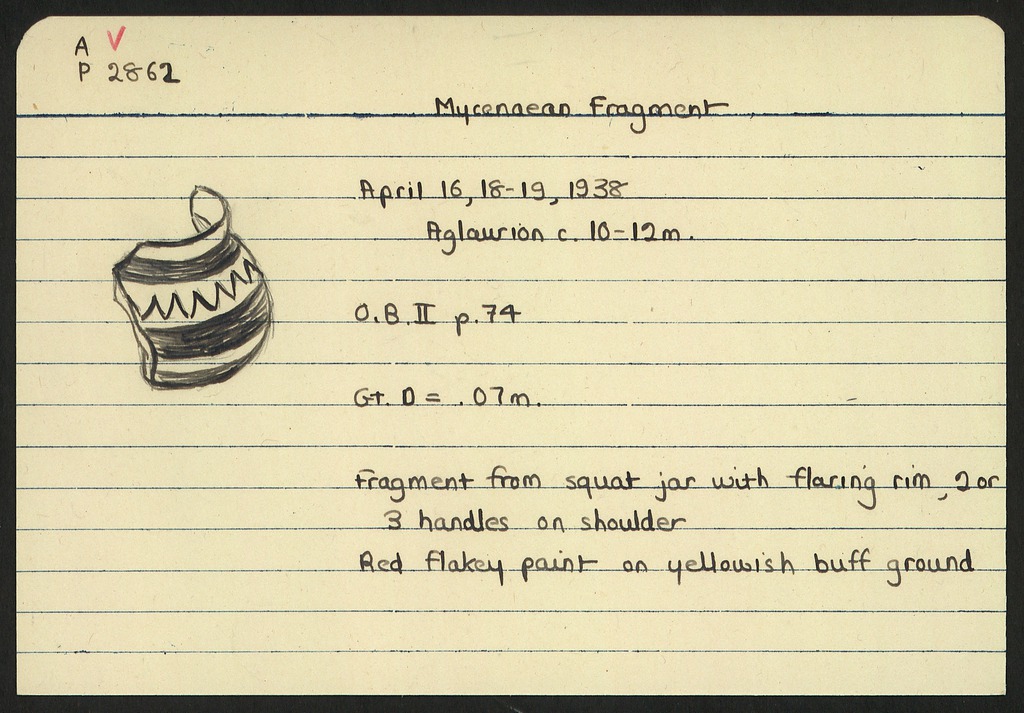 A V
P 2862
Mycenaean Fragment
April 16, 18-19, 1938
Aglaurion c. 10-12m.
O.B. II p. 74
Gt. D = .07m.
Fragment from squat jar with flaring rim, 2 or
3 handles on shoulder
Red flakey paint on yellowish buff ground